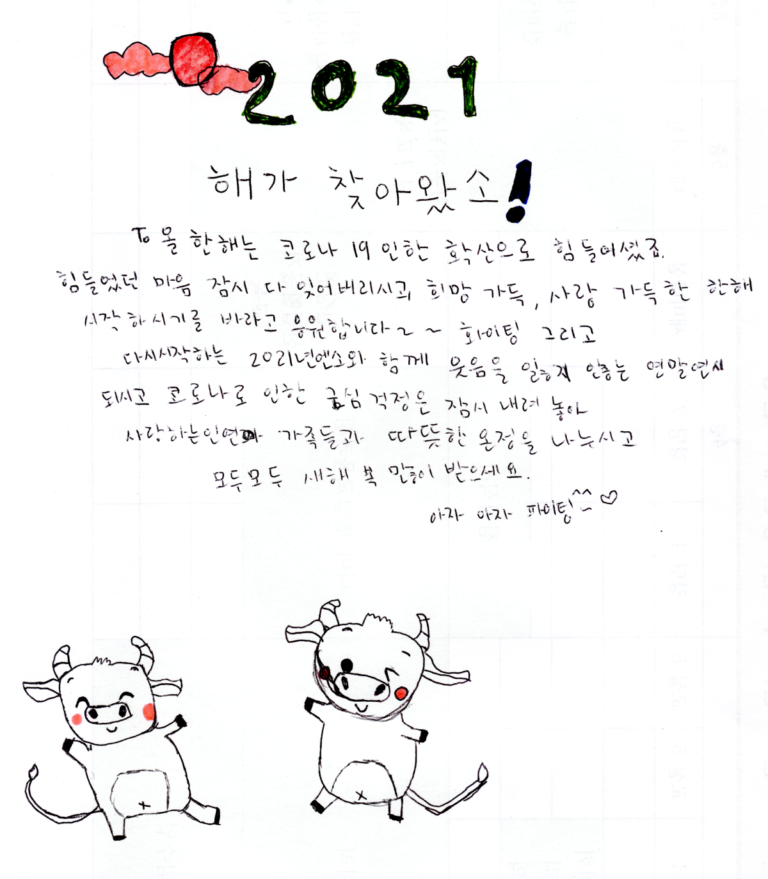 2021
해가 찾아왔소!
To 올 한해는 코로나 19 인한 확산으로 힘들어셨죠.
힘들었던 마음 잠시 다 잊어버리시고, 희망 가득, 사랑 가득한 한해
시작하시기를 바라고 응원합니다~ ~ 화이팅 그리고
다시시작하는 2021년엔소와 함께 웃음을 잃하지 안하는 연말연시
되시고 코로나로 인한 근심 걱정은 잠시 내려 놓아
사랑하는인연과 가족들과 따뜻한 온정을 나누시고
모두모두 새해 복 많이 받으세요.
아자 아자 파이팅^^ ♡